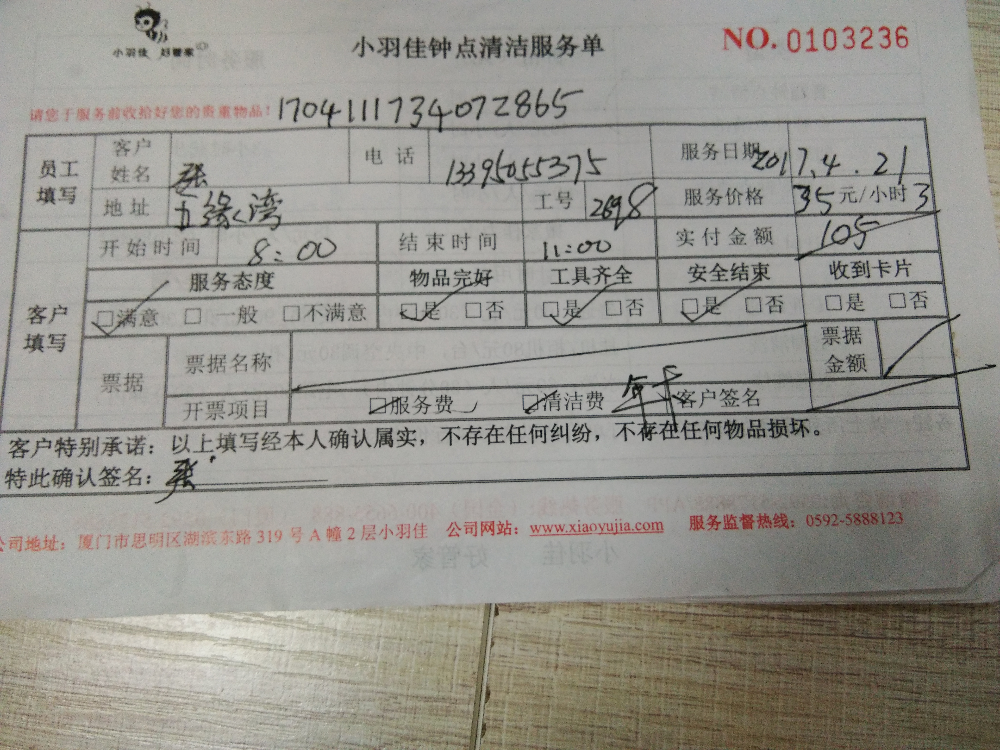 小羽佳 好管家
小羽佳钟点清洁服务单
NO. 0103236
请您于服务前收拾好您的贵重物品！ 1704111734072865
员工填写 客户姓名 张 电话 13395055375 服务日期 2017.4.21
地址 五缘湾 工号 2698 服务价格 35元/小时 3
客户填写 开始时间 8:00 结束时间 11:00 实付金额 105
服务态度 物品完好 工具齐全 安全结束 收到卡片
☑满意 □一般 □不满意 ☑是 □否 ☑是 □否 ☑是 □否 □是 □否
票据 票据名称 票据金额
开票项目 ☑服务费 ☑清洁费 年卡 客户签名
客户特别承诺：以上填写经本人确认属实，不存在任何纠纷，不存在任何物品损坏。
特此确认签名：张
公司地址：厦门市思明区湖滨东路 319 号 A 幢 2 层小羽佳 公司网站：www.xiaoyujia.com 服务监督热线：0592-5888123